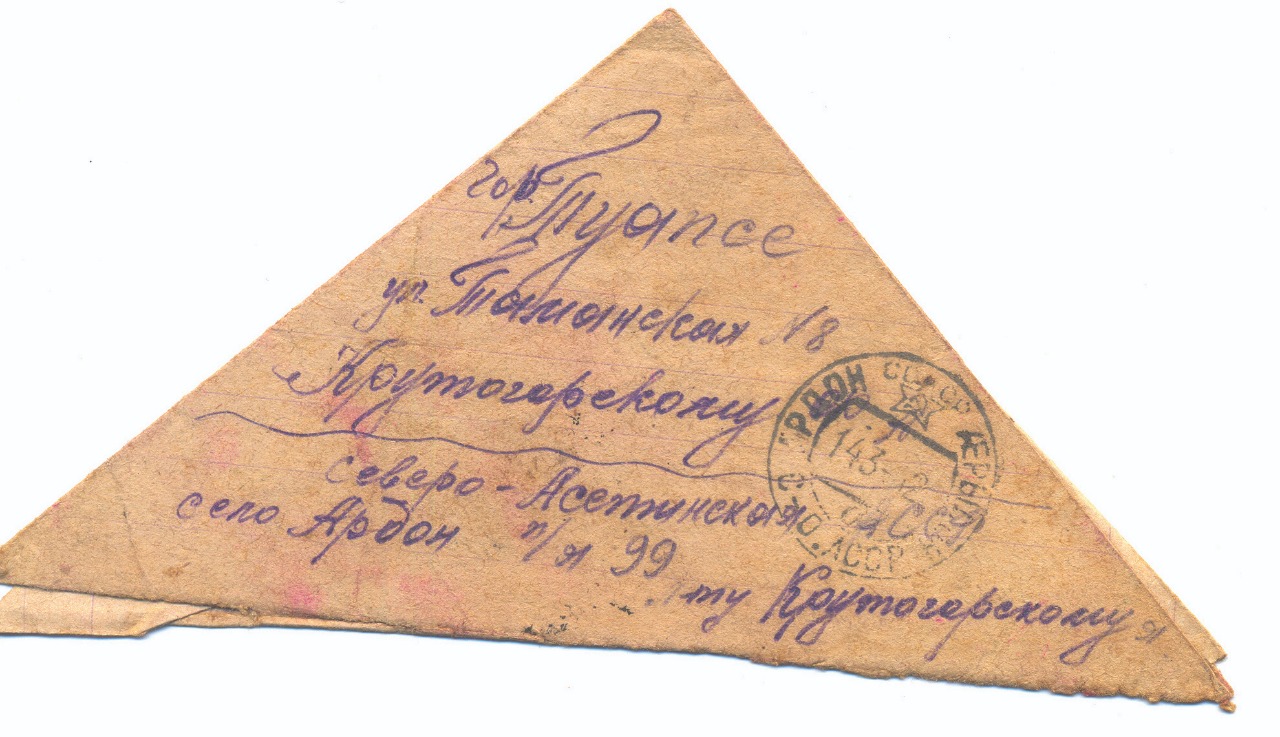 гор. Туапсе
ул. Таманская N 8
Крутогорскому
северо-Асетинская АССР
село Ардон п/я 99
ту Крутогорскому я
АРДОН СССР
143
С-О. АССР